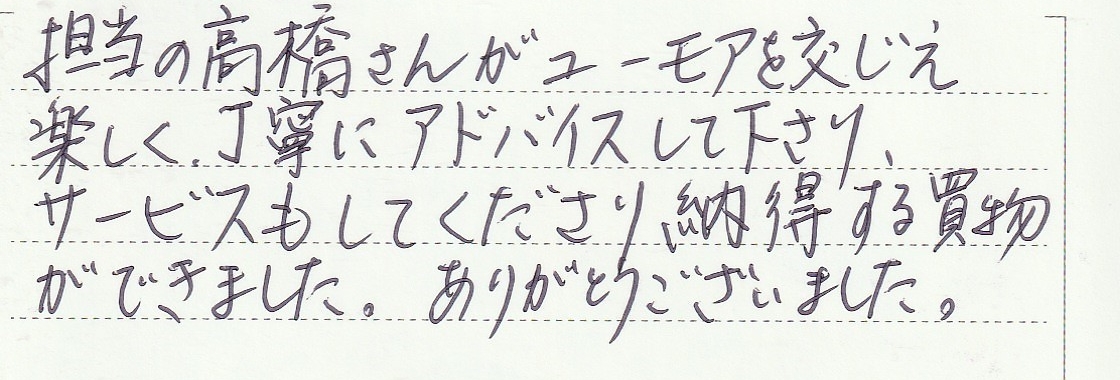 担当の高橋さんがユーモアを交じえ
楽しく、丁寧にアドバイスして下さり、
サービスもしてくださり納得する買物
ができました。ありがとうございました。